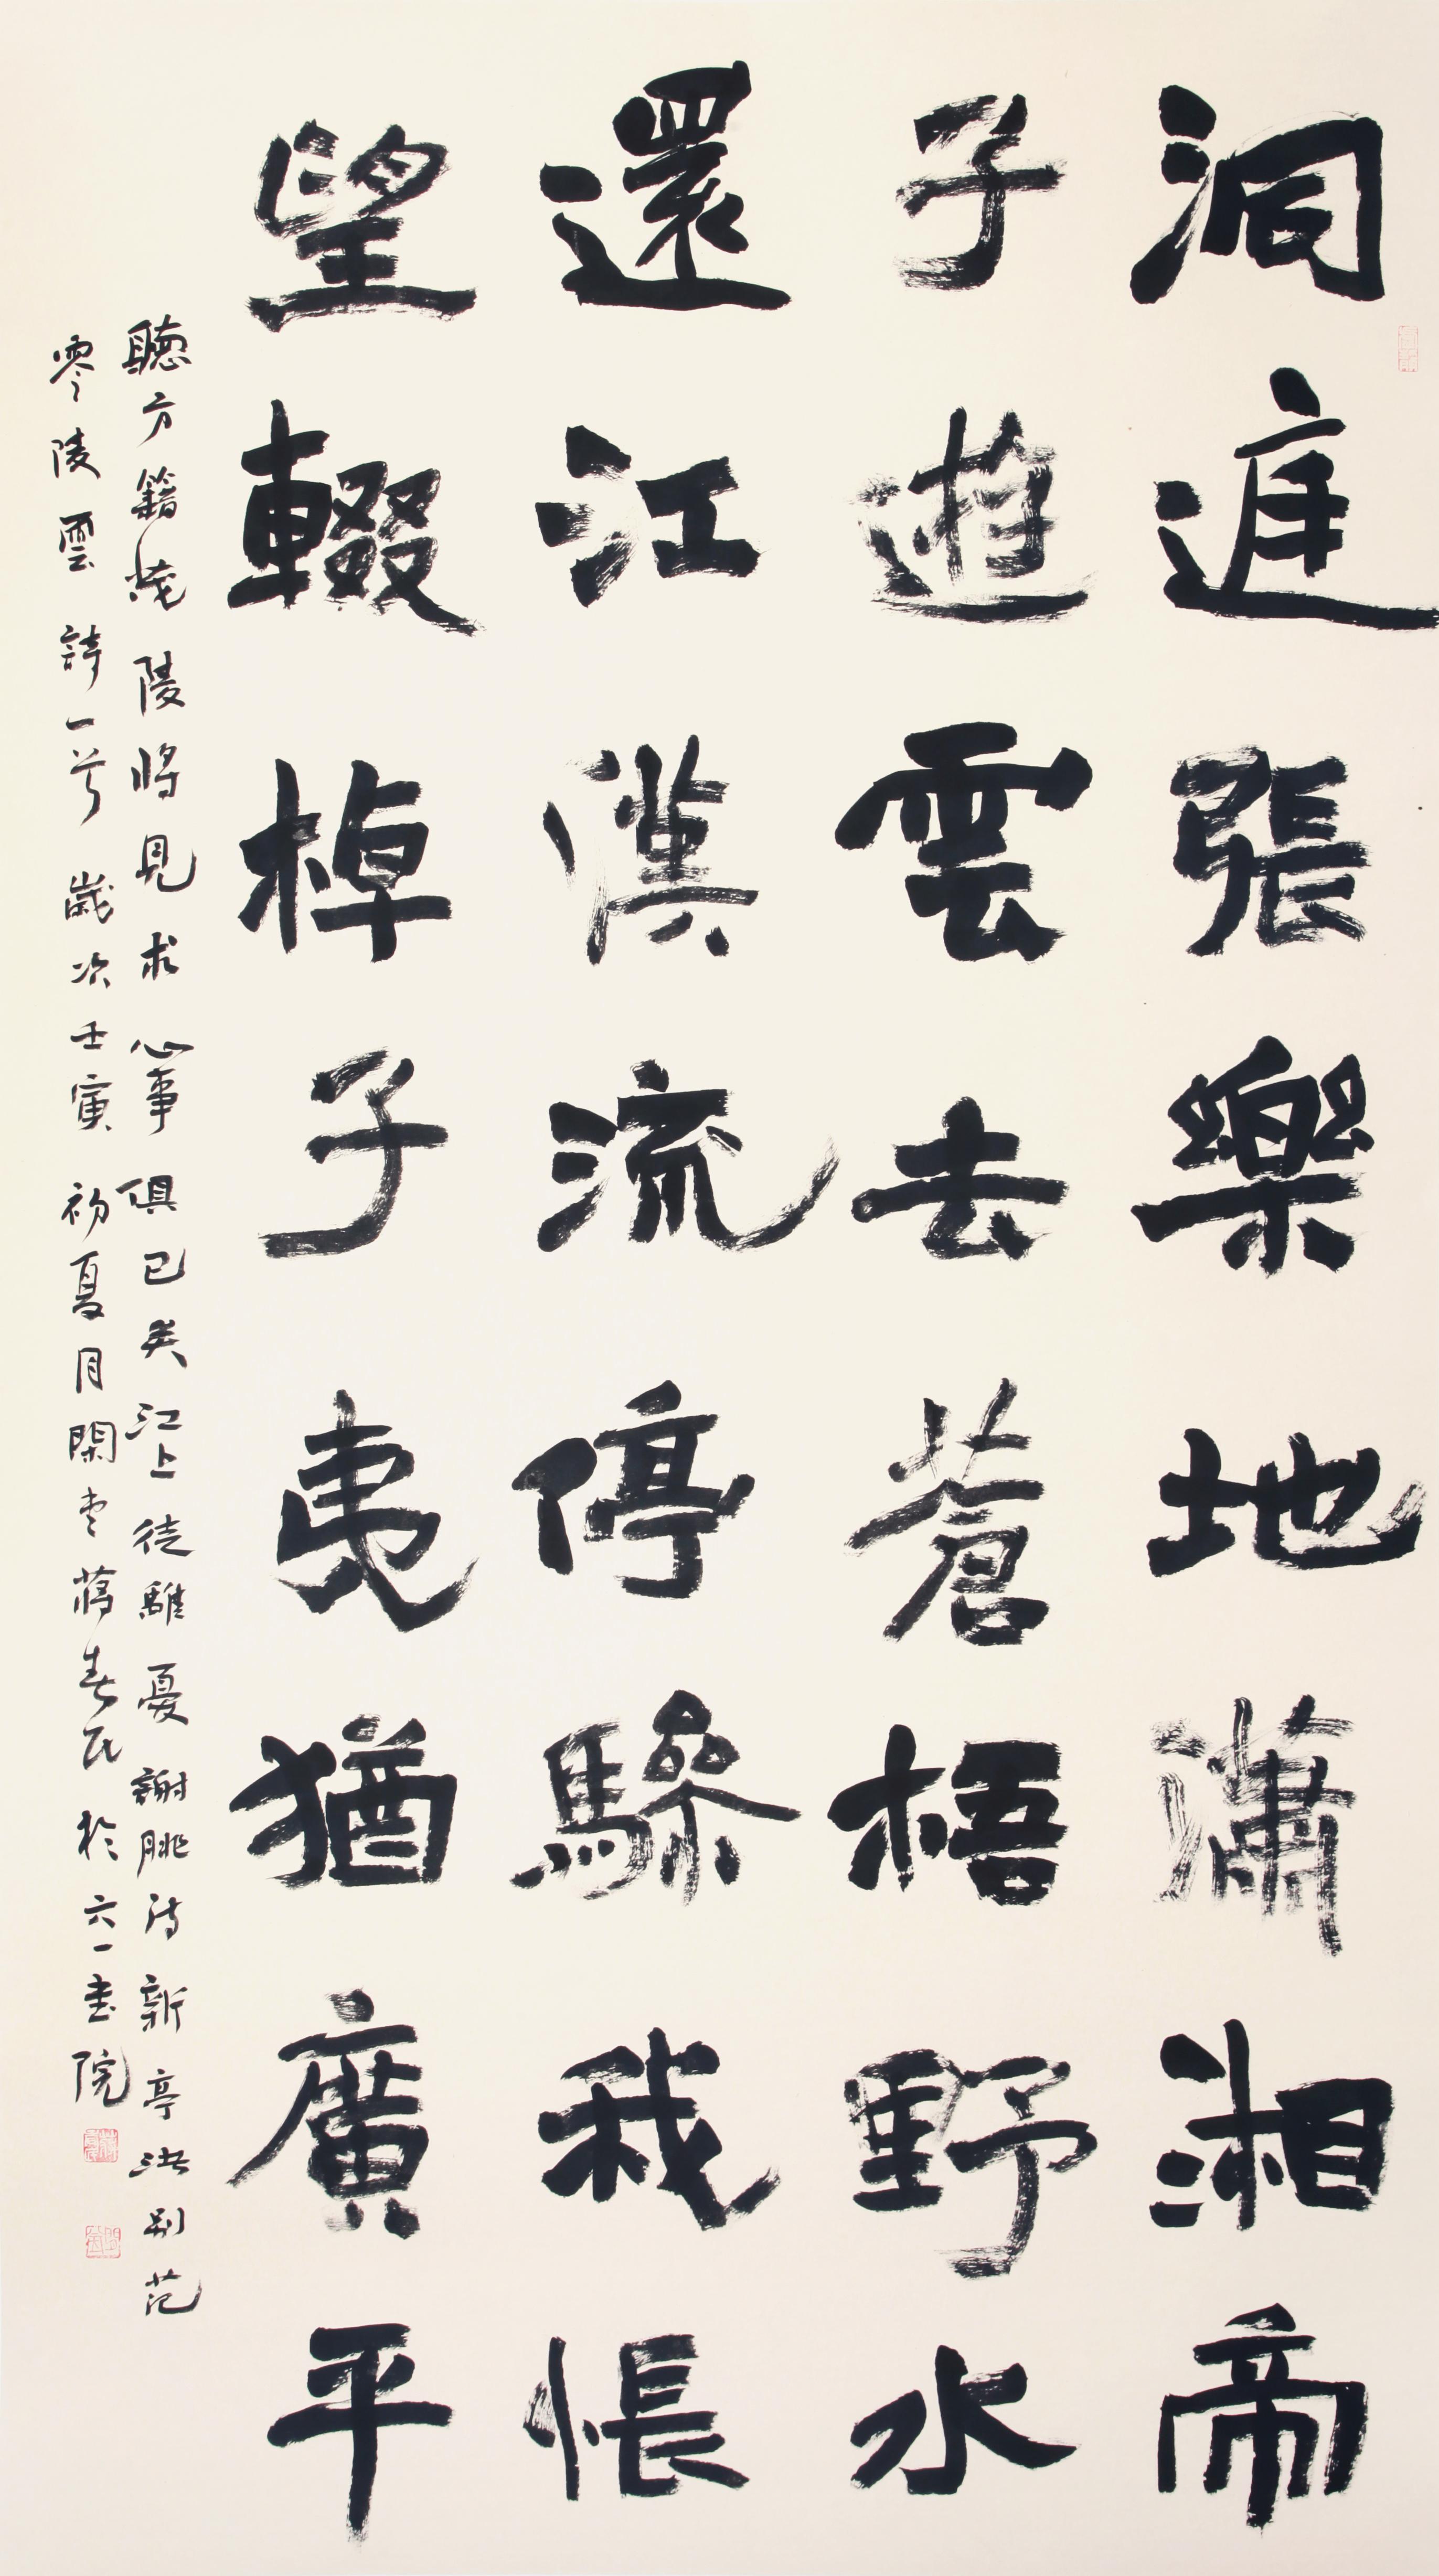 洞庭張樂地瀟湘帝
子遊雲去蒼梧野水
還江漢流停驂我悵
望輟棹子夷猶廣平
聽方籍茂陵將見求心事俱已矣江上徒離憂謝朓詩新亭渚別范
零陵雲詩一首歲次壬寅初夏月閑堂蔣春民於六一書院